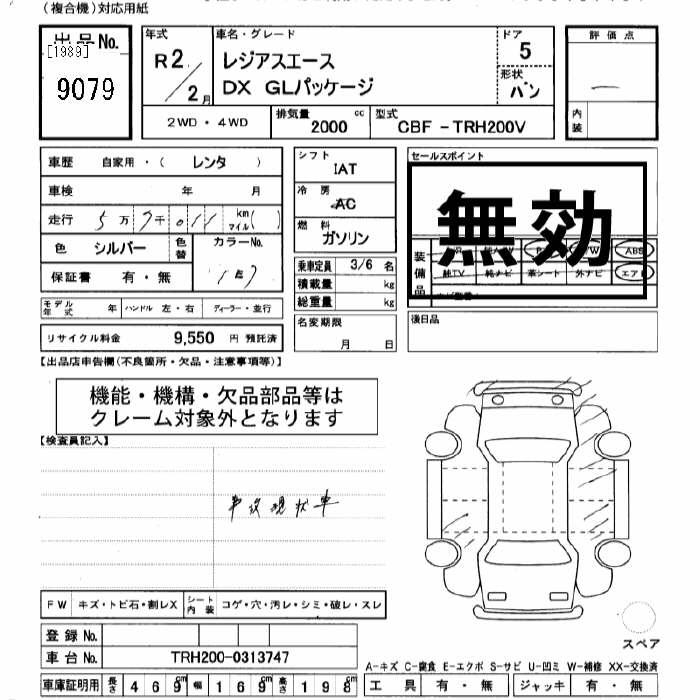 (複合機)対応用紙
出品No.
[1989]
9079
年式
R2/2月
車名・グレード
レジアスエース
DX GLパッケージ
ドア
5
形状
バン
評価点
内装
2WD・4WD
排気量
2000 cc
型式
CBF-TRH200V
車歴 自家用・(レンタ)
車検 年 月
走行 5万7千011 km マイル( )
色 シルバー 色替 カラーNo.
1E7
保証書 有・無
モデル年式 年 ハンドル 左・右 ディーラー・並行
リサイクル料金 9,550 円 預託済
シフト
IAT
冷房
AC
燃料
ガソリン
乗車定員 3/6 名
積載量 kg
総重量 kg
名変期限
月 日
セールスポイント
無効
装備品
ABS
純TV 純ナビ 革シート 外ナビ エアB
後日品
【出品店申告欄(不良箇所・欠品・注意事項等)】
機能・機構・欠品部品等は
クレーム対象外となります
【検査員記入】
事故現状車
FW キズ・トビ石・割レX シート内装 コゲ・穴・汚レ・シミ・破レ・スレ
登録No.
車台No. TRH200-0313747
車庫証明用 長さ 469cm 幅 169cm 高さ 198cm
スペア
A-キズ C-腐食 E-エクボ S-サビ U-凹ミ W-補修 XX-交換済
工具 有・無 ジャッキ 有・無